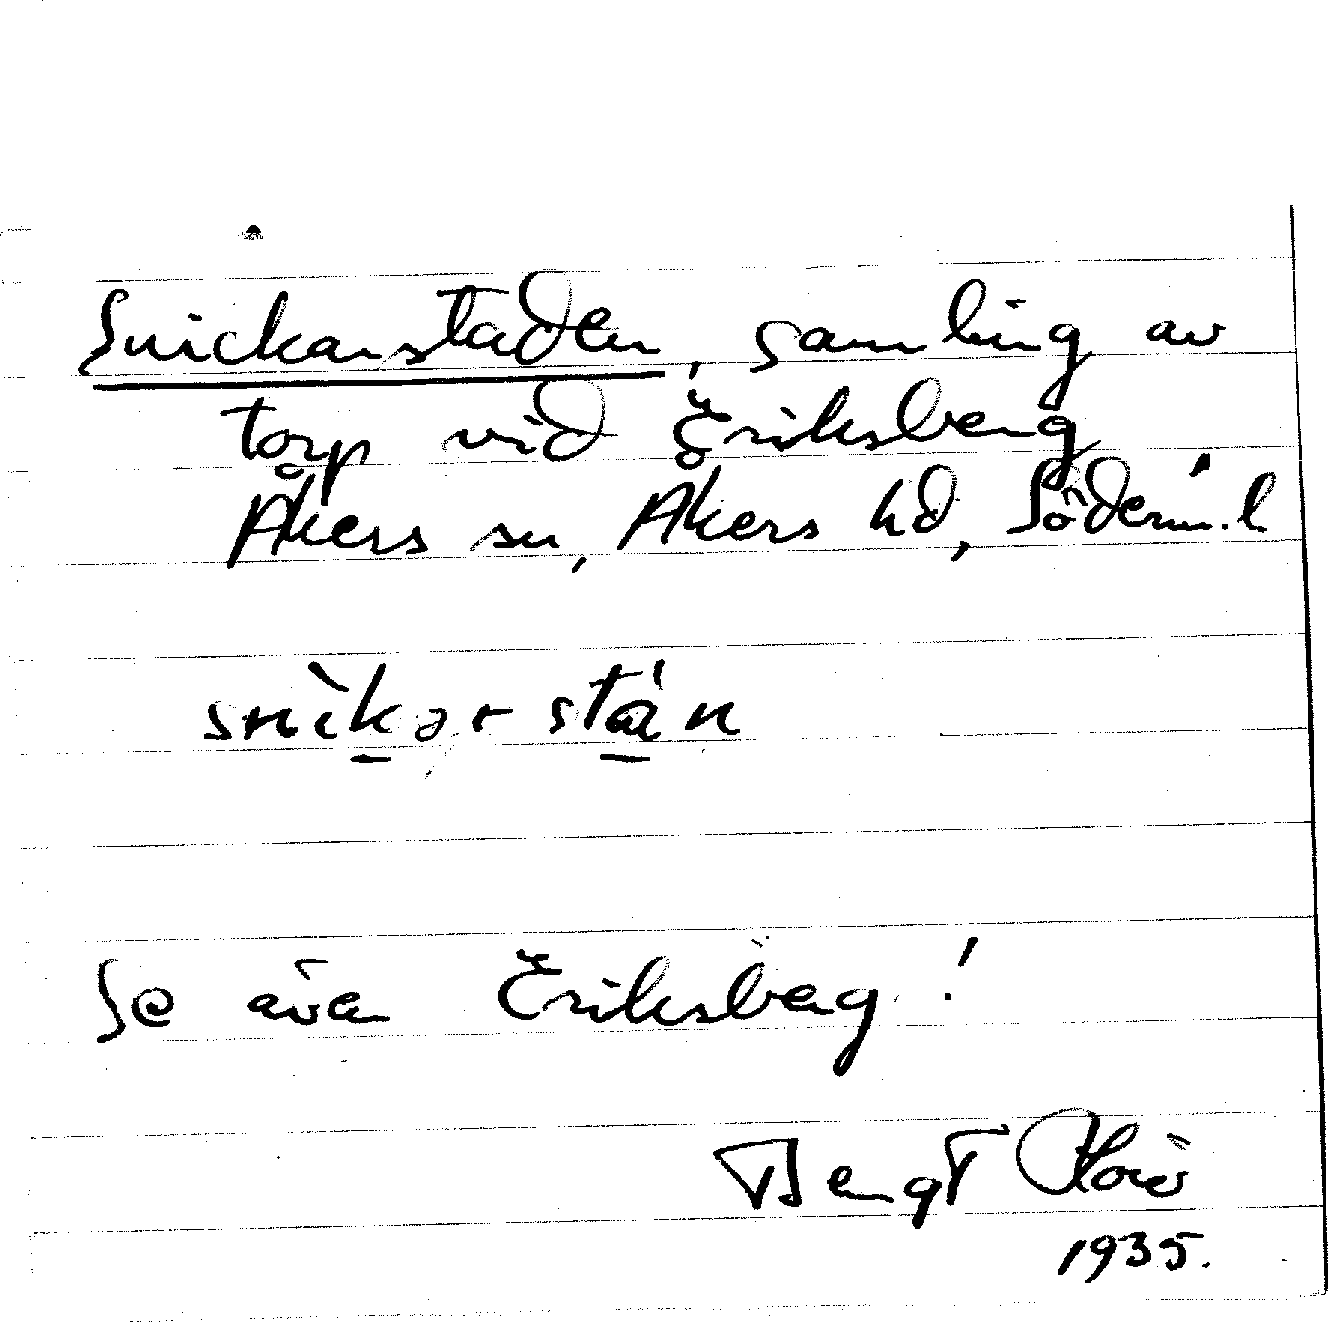 Snickarstaden, samling av
torp vid Eriksberg,
Åkers sn, Åkers hd, Söderm. l
snìkər stán
Se även Eriksberg!
Bengt
1935.